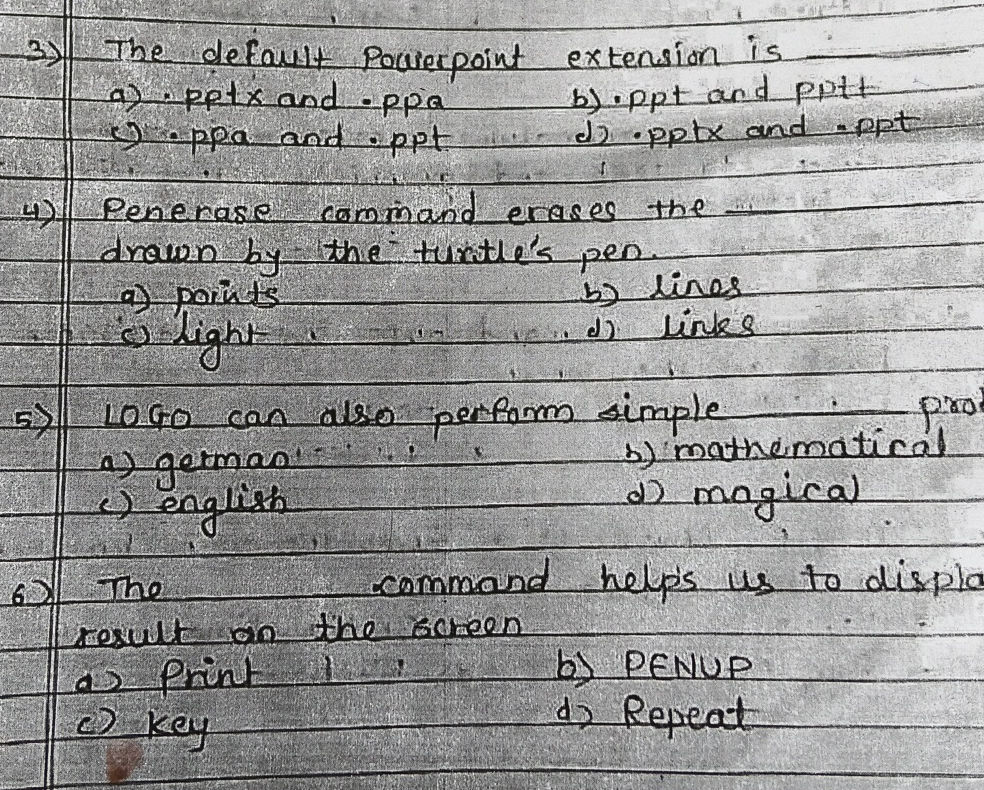 3) The default Powerpoint extension is
a) .pptx and .ppa b) .ppt and pptt
c) .ppa and .ppt d) .pptx and .ppt
4) Penerase command erases the
drawn by the turtle's pen.
a) points b) lines
c) light d) links
5) LOGO can also perform simple
a) german b) mathematical
c) english d) magical
6) The command helps us to displa
result on the screen
a) Print b) PENUP
c) key d) Repeat